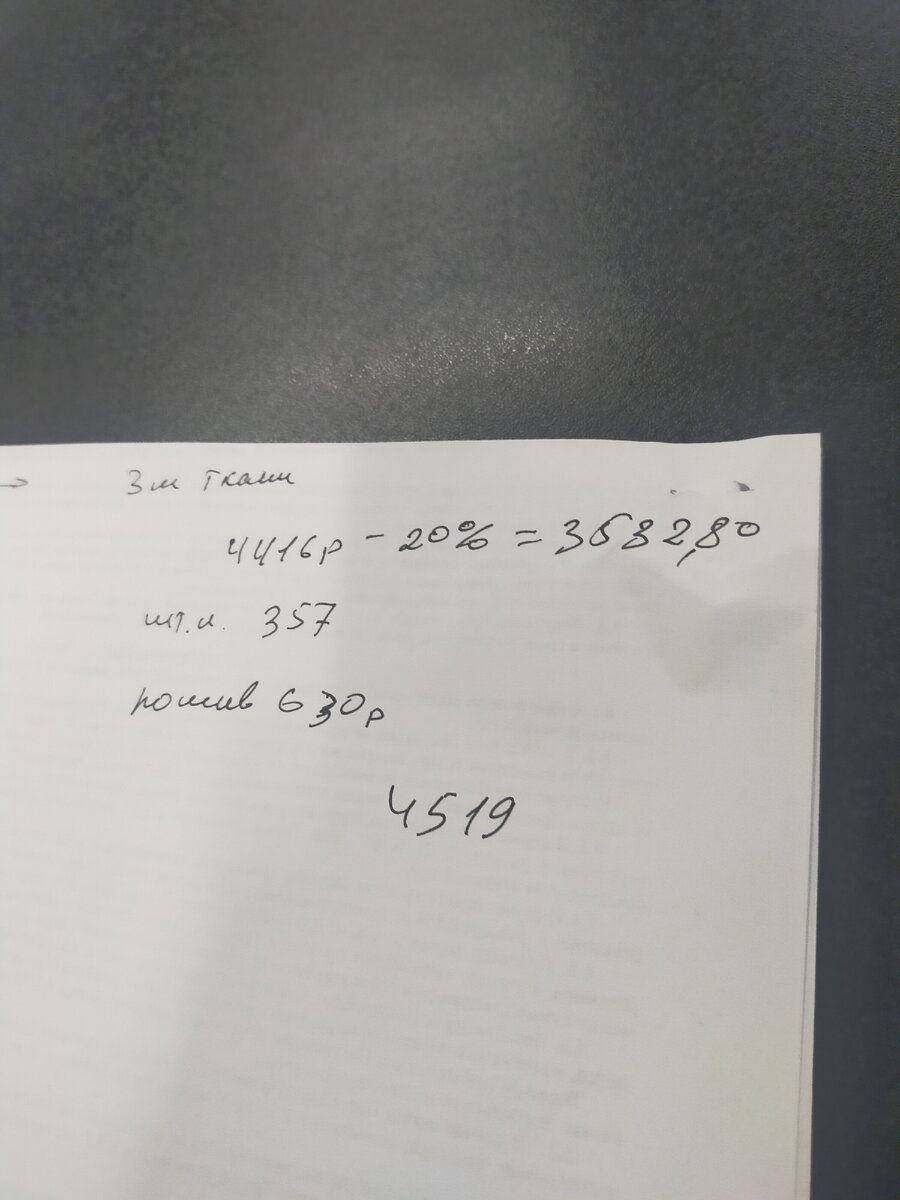 → 3м ткани
4416р - 20% = 3532,80
шт.л. 357
пошив 630р
4519